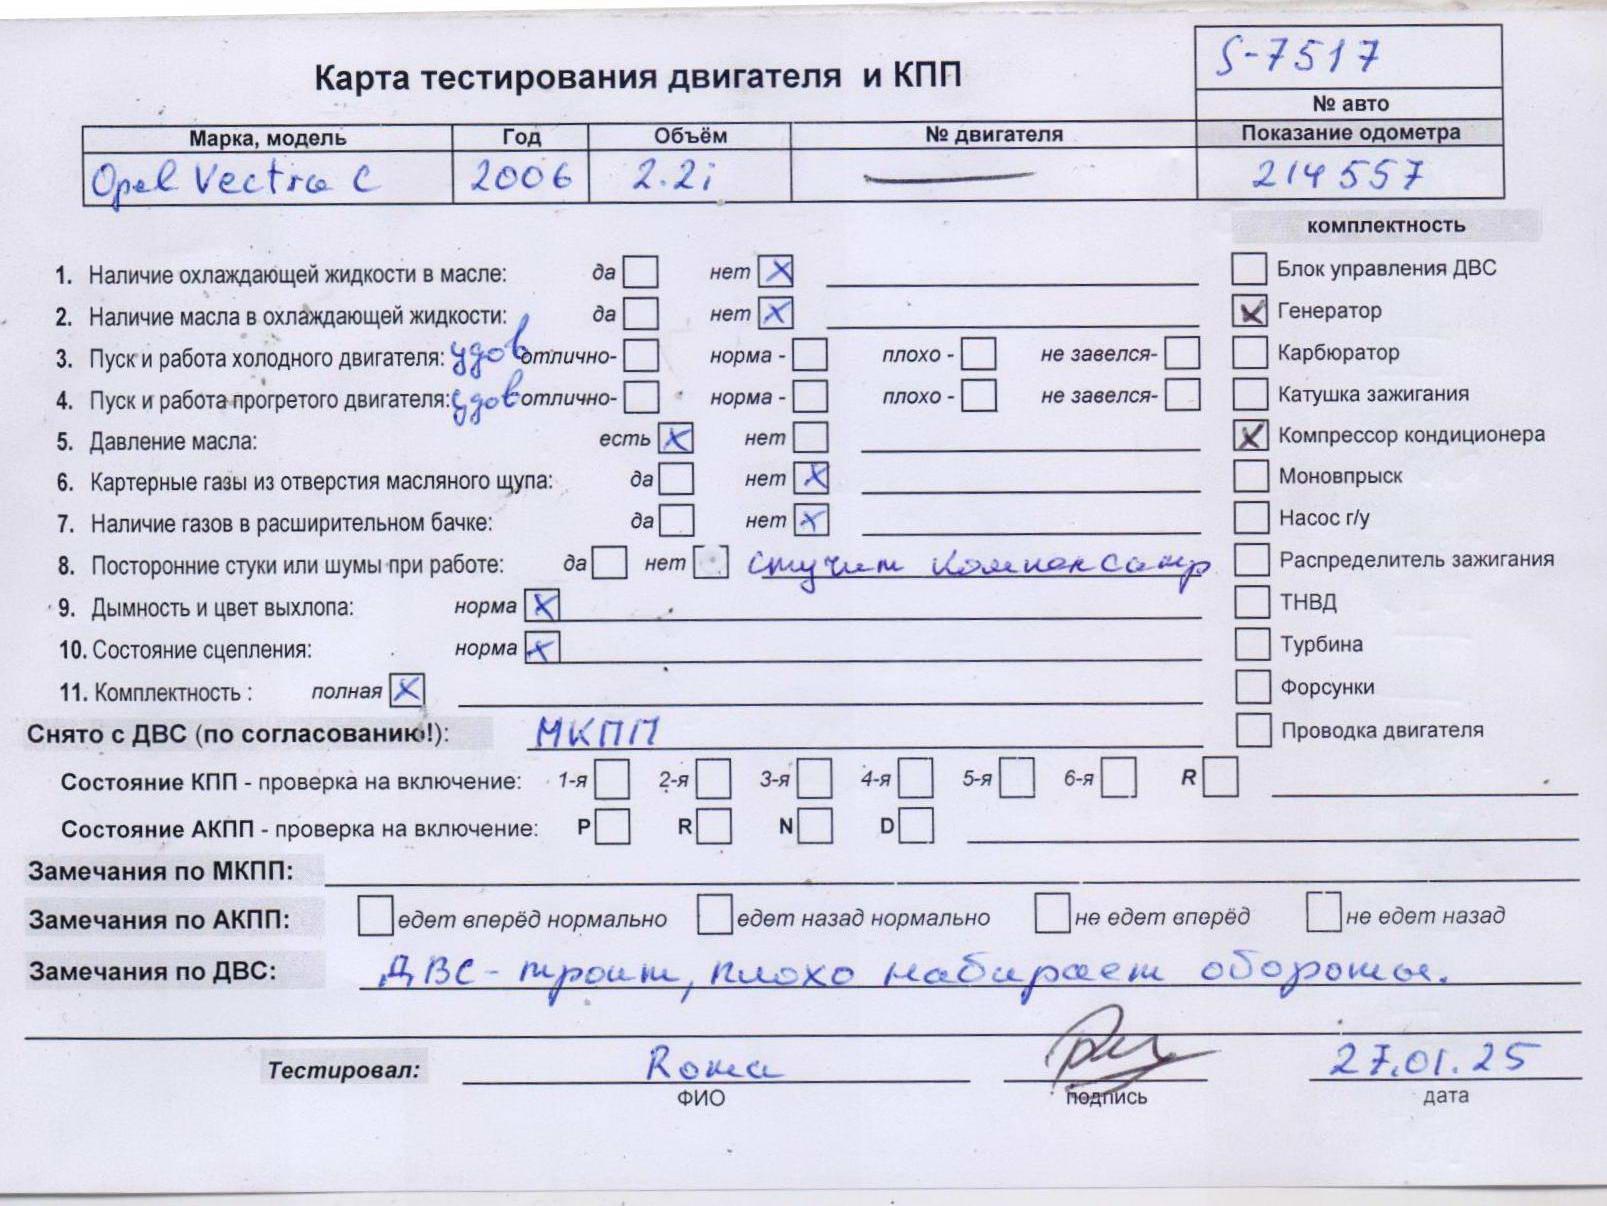 S-7517
Карта тестирования двигателя и КПП
№ авто
Марка, модель Год Объём № двигателя Показание одометра
Opel Vectra C 2006 2.2i 214557
комплектность
1. Наличие охлаждающей жидкости в масле: да нет X
Блок управления ДВС
2. Наличие масла в охлаждающей жидкости: да нет X
X Генератор
3. Пуск и работа холодного двигателя: удов отлично- норма - плохо - не завелся-
Карбюратор
4. Пуск и работа прогретого двигателя: удов отлично- норма - плохо - не завелся-
Катушка зажигания
5. Давление масла: есть X нет
X Компрессор кондиционера
6. Картерные газы из отверстия масляного щупа: да нет X
Моновпрыск
7. Наличие газов в расширительном бачке: да нет X
Насос г/у
8. Посторонние стуки или шумы при работе: да нет стучит компенсатр
Распределитель зажигания
9. Дымность и цвет выхлопа: норма X
ТНВД
10. Состояние сцепления: норма X
Турбина
11. Комплектность : полная X
Форсунки
Снято с ДВС (по согласованию!): МКПП
Проводка двигателя
Состояние КПП - проверка на включение: 1-я 2-я 3-я 4-я 5-я 6-я R
Состояние АКПП - проверка на включение: P R N D
Замечания по МКПП:
Замечания по АКПП: едет вперёд нормально едет назад нормально не едет вперёд не едет назад
Замечания по ДВС: ДВС - троит, плохо набирает обороты.
Тестировал: Рома 27.01.25
ФИО подпись дата